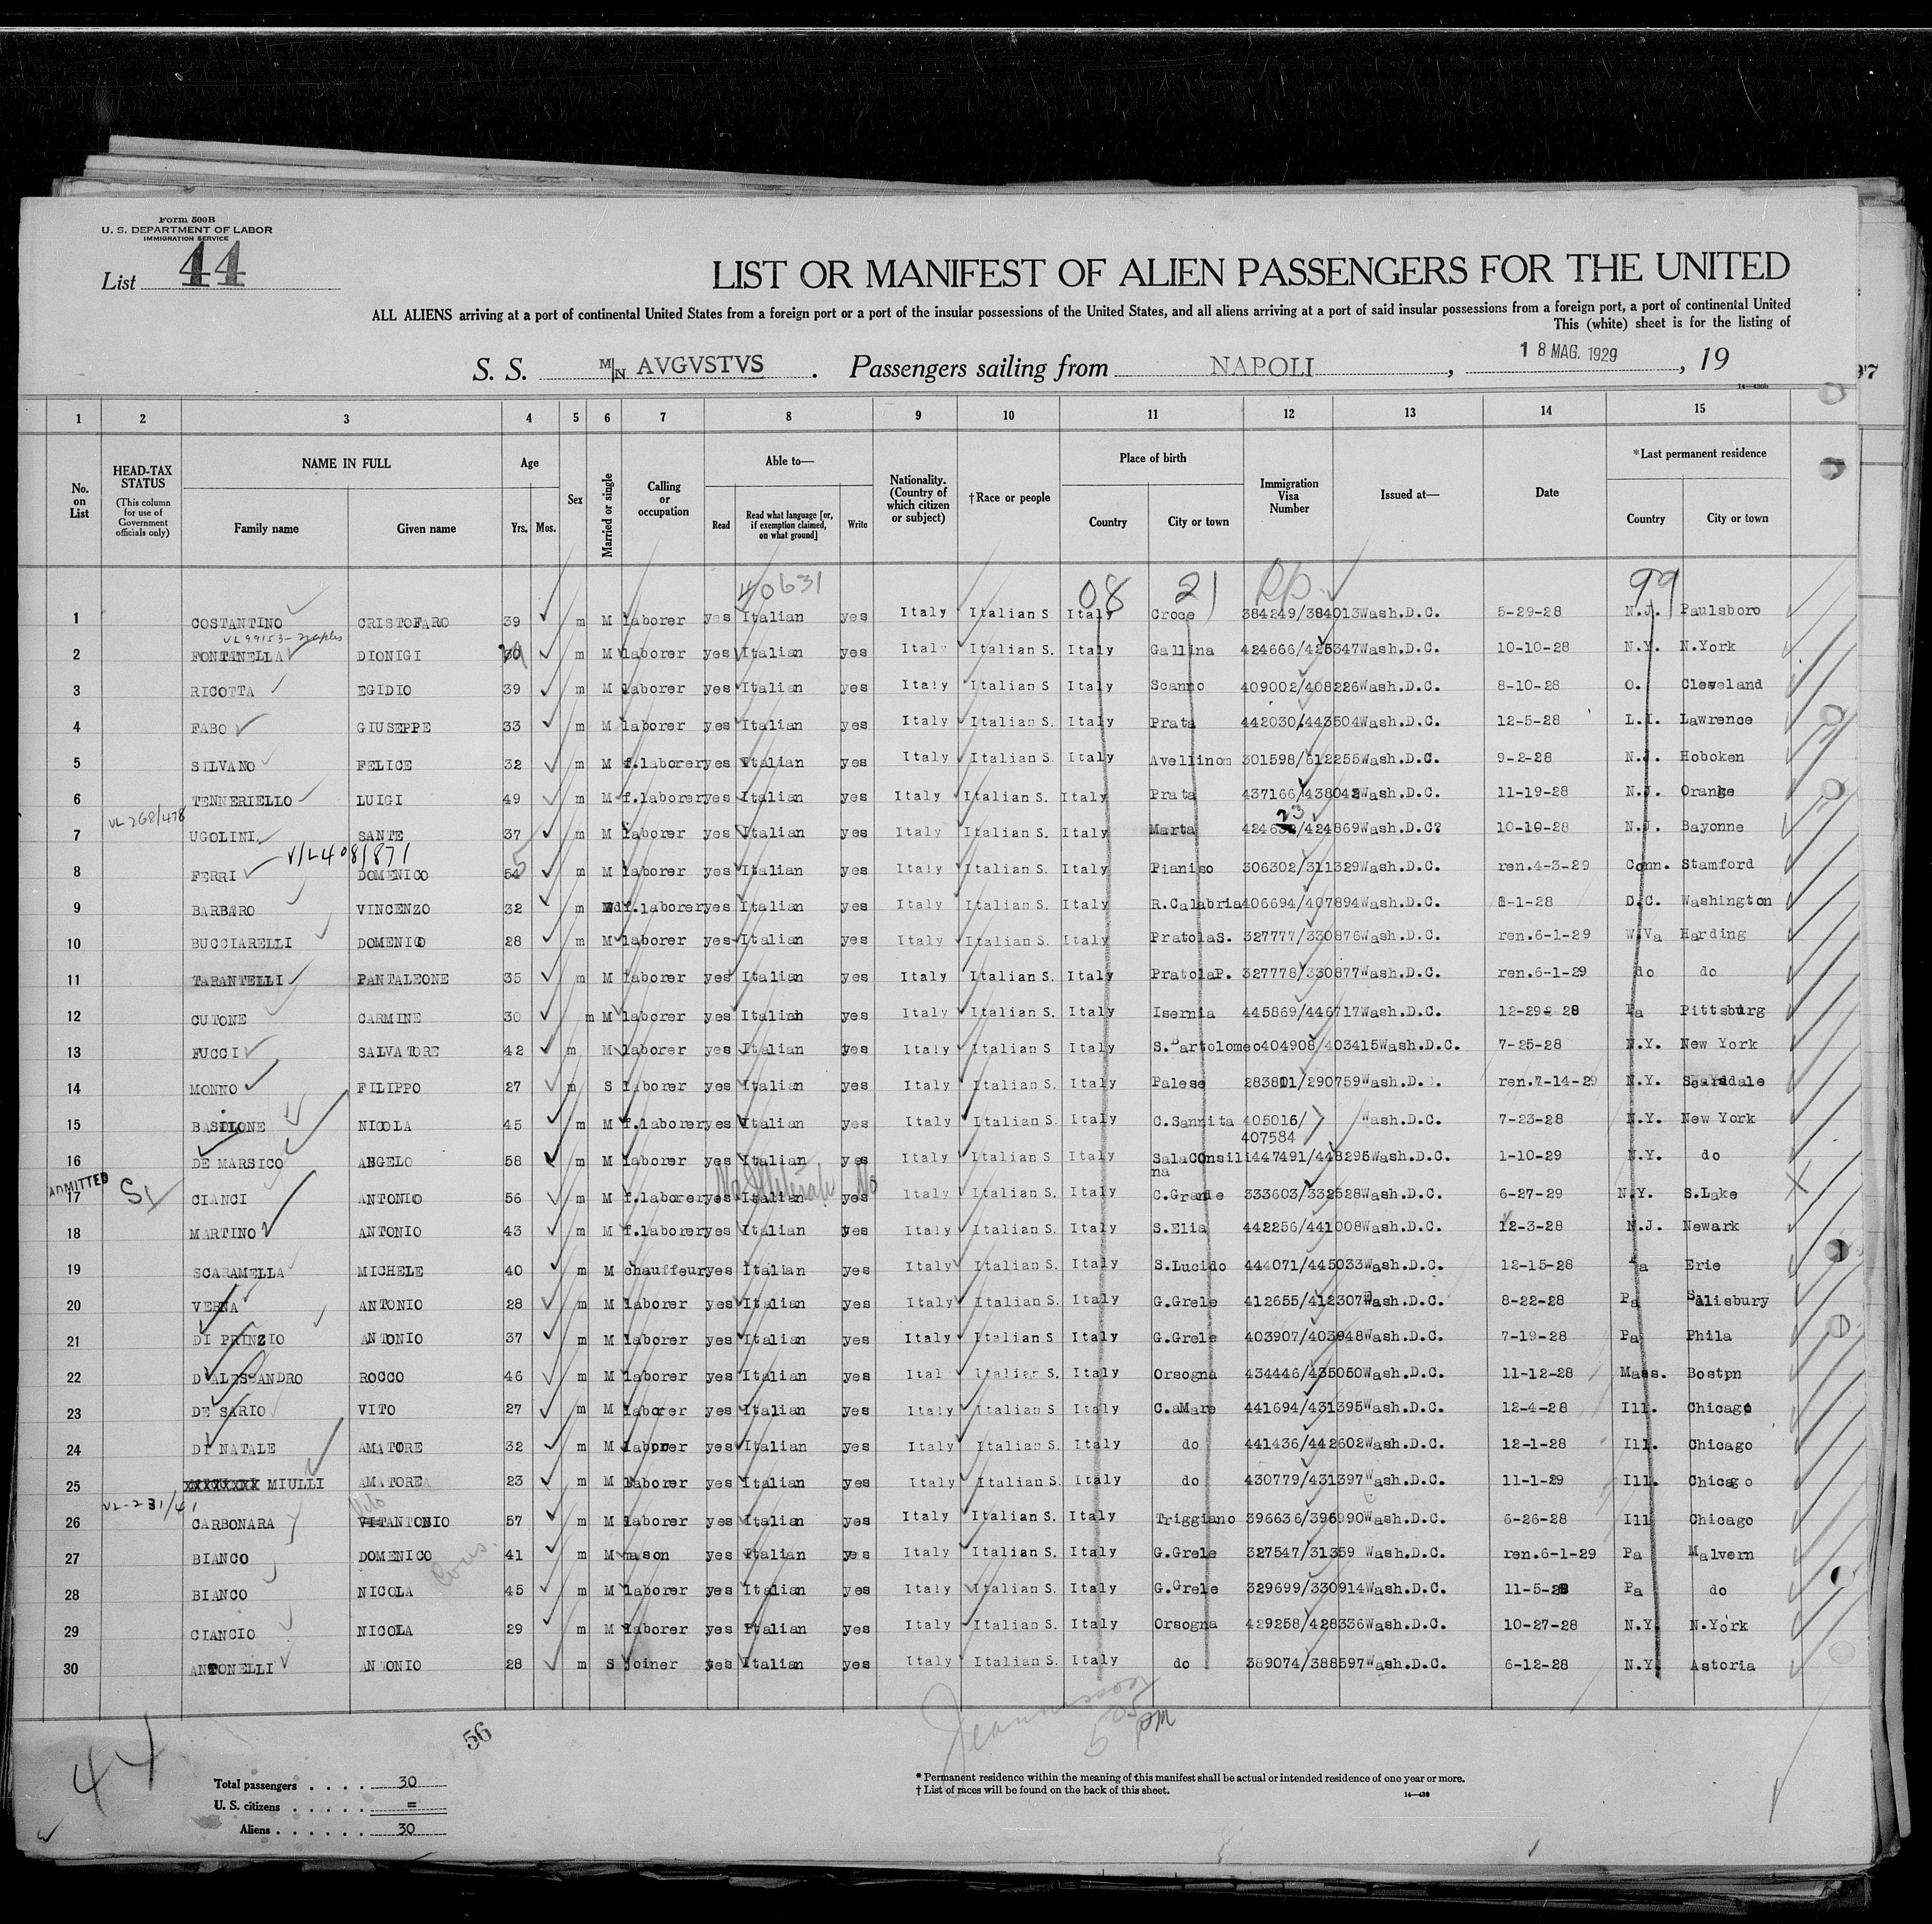 Form 500B
U. S. DEPARTMENT OF LABOR
IMMIGRATION SERVICE
List 44
LIST OR MANIFEST OF ALIEN PASSENGERS FOR THE UNITED
ALL ALIENS arriving at a port of continental United States from a foreign port or a port of the insular possessions of the United States, and all aliens arriving at a port of said insular possessions from a foreign port, a port of continental United
This (white) sheet is for the listing of
S. S. M/N AVGVSTVS . Passengers sailing from NAPOLI , 18 MAG. 1929 , 19
14—430b
97
1 2 3 4 5 6 7 8 9 10 11 12 13 14 15
No. on List
HEAD-TAX STATUS (This column for use of Government officials only)
NAME IN FULL
Family name Given name
Age
Yrs. Mos.
Sex
Married or single
Calling or occupation
Able to—
Read Read what language [or, if exemption claimed, on what ground] Write
Nationality. (Country of which citizen or subject)
†Race or people
Place of birth
Country City or town
Immigration Visa Number
Issued at—
Date
*Last permanent residence
Country City or town
40631 08 21 99
1 COSTANTINO CRISTOFARO 39 m M laborer yes Italian yes Italy Italian S. Italy Croce 384249/384013 Wash.D.C. 5-29-28 N.J. Paulsboro
VL 99153-Naples
2 FONTANELLA DIONIGI m M laborer yes Italian yes Italy Italian S. Italy Gallina 424666/425347 Wash.D.C. 10-10-28 N.Y. N.York
3 RICOTTA EGIDIO 39 m M laborer yes Italian yes Italy Italian S Italy Scanno 409002/408226 Wash.D.C. 8-10-28 O. Cleveland
4 FABO GIUSEPPE 33 m M laborer yes Italian yes Italy Italian S. Italy Prata 442030/443504 Wash.D.C. 12-5-28 L.I. Lawrence
5 SILVANO FELICE 32 m M f.laborer yes Italian yes Italy Italian S. Italy Avellinom 301598/612255 Wash.D.C. 9-2-28 N.J. Hoboken
6 TENNERIELLO LUIGI 49 m M f.laborer yes Italian yes Italy Italian S. Italy Prata 437166/438042 Wash.D.C. 11-19-28 N.J. Orange
VL 268/478 23
7 UGOLINI SANTE 37 m M laborer yes Italian yes Italy Italian S. Italy Marta /424869 Wash.D.C? 10-10-28 N.J. Bayonne
V/L 408/871
8 FERRI DOMENICO 54 m M laborer yes Italian yes Italy Italian S. Italy Pianiso 306302/311329 Wash.D.C. ren.4-3-29 Conn. Stamford
9 BARBARO VINCENZO 32 m Wd f.laborer yes Italian yes Italy Italian S. Italy R.Calabria 406694/407894 Wash.D.C. -1-28 D.C. Washington
10 BUCCIARELLI DOMENICO 28 m M laborer yes Italian yes Italy Italian S. Italy PratolaS. 327777/330876 Wash.D.C. ren.6-1-29 W.Va Harding
11 TARANTELLI PANTALEONE 35 m M laborer yes Italian yes Italy Italian S. Italy PratolaP. 327778/330877 Wash.D.C. ren.6-1-29 do do
12 CUTONE CARMINE 30 m M laborer yes Italian yes Italy Italian S. Italy Isernia 445869/446717 Wash.D.C. 12-29- 28 Pa Pittsburg
13 FUCCI SALVATORE 42 m M laborer yes Italian yes Italy Italian S Italy S.Bartolomeo 404908/403415 Wash.D.C. 7-25-28 N.Y. New York
14 MONNO FILIPPO 27 m S laborer yes Italian yes Italy Italian S. Italy Palese 283801/290759 Wash.D. . ren.7-14-29 N.Y. Scarsdale
15 BASILONE NICOLA 45 m M f.laborer yes Italian yes Italy Italian S. Italy C.Sannita 405016/ 407584 Wash.D.C. 7-23-28 N.Y. New York
16 DE MARSICO ANGELO 58 m M laborer yes Italian yes Italy Italian S Italy SalaConsilina 447491/448295 Wash.D.C. 1-10-29 N.Y. do
ADMITTED SI No Illiterate No
17 CIANCI ANTONIO 56 m M f.laborer yes Italian yes Italy Italian S. Italy C.Grande 333603/332528 Wash.D.C. 6-27-29 N.Y. S.Lake
18 MARTINO ANTONIO 43 m M f.laborer yes Italian yes Italy Italian S. Italy S.Elia 442256/441008 Wash.D.C. 12-3-28 N.J. Newark
19 SCARAMELLA MICHELE 40 m M chauffeur yes Italian yes Italy Italian S. Italy S.Lucido 444071/445033 Wash.D.C. 12-15-28 Pa Erie
20 VERNA ANTONIO 28 m M laborer yes Italian yes Italy Italian S. Italy G.Grele 412655/412307 Wash.D.C. 8-22-28 Pa Salisbury
21 DI PRINZIO ANTONIO 37 m M laborer yes Italian yes Italy Italian S Italy G.Grele 403907/403948 Wash.D.C. 7-19-28 Pa Phila
22 D'ALESSANDRO ROCCO 46 m M laborer yes Italian yes Ital Italian S. Italy Orsogna 434446/435050 Wash.D.C. 11-12-28 Mass. Bostpn
23 DE SARIO VITO 27 m M laborer yes Italian yes Italy Italian S Italy C.aMare 441694/431395 Wash.D.C. 12-4-28 Ill. Chicago
24 DI NATALE AMATORE 32 m M laborer yes Italian yes Italy Italian S. Italy do 441436/442602 Wash.D.C. 12-1-28 Ill. Chicago
25 XXXXXXXX MIULLI AMATORE 23 m M laborer yes Italian yes Italy Italian S. Italy do 430779/431397 Wash.D.C. 11-1-29 Ill. Chicago
VL-231/41 Vito
26 CARBONARA VITANTONIO 57 m M laborer yes Italian yes Italy Italian S. Italy Triggiano 396636/396990 Wash.D.C. 6-26-28 Ill Chicago
27 BIANCO DOMENICO 41 m M mason yes Italian yes Italy Italian S. Italy G.Grele 327547/31359 Wash.D.C. ren.6-1-29 Pa Malvern
Cous.
28 BIANCO NICOLA 45 m M laborer yes Italian yes Italy Italian S. Italy G.Grele 329699/330914 Wash.D.C. 11-5-28 Pa do
29 CIANCIO NICOLA 29 m M laborer yes Italian yes Italy Italian S. Italy Orsogna 429258/428336 Wash.D.C. 10-27-28 N.Y. N.York
30 ANTONELLI ANTONIO 28 m S joiner yes Italian yes Italy Italian S. Italy do 389074/388597 Wash.D.C. 6-12-28 N.Y. Astoria
44
56
505 PM
Total passengers . . . . 30
U. S. citizens . . . . . =
Aliens . . . . . . 30
* Permanent residence within the meaning of this manifest shall be actual or intended residence of one year or more.
† List of races will be found on the back of this sheet.
14—430